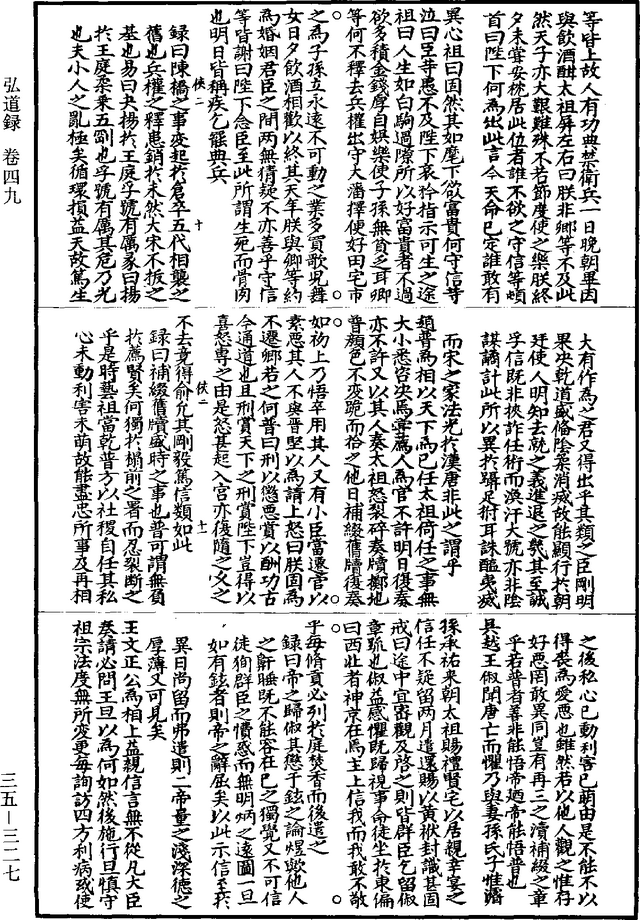 弘道録　卷四九
三五—三二七
等皆上故人有功典禁衛兵一日晚朝畢因
與飲酒酣太祖屏左右曰朕非卿等不及此
然天子亦大艱難殊不若節度使之樂朕終
夕未嘗安枕居此位者誰不欲之守信等頓
首曰陛下何為出此言今天命已定誰敢有
異心祖曰固然其如麾下欲富貴何守信等
泣曰臣等愚不及陛下哀矜指示可生之途
祖曰人生如白駒過隙所以好富貴者不過
欲多積金錢厚自娛樂使子孫無貧乏耳卿
等何不釋去兵權出守大藩擇便好田宅市
之為子孫立永遠不可動之業多買歌兒舞
女日夕飲酒相歡以終其天年朕與卿等約
為婚姻君臣之間兩無猜疑不亦善乎守信
等皆謝曰陛下念臣至此所謂生死而骨肉
也明日皆稱疾乞罷典兵
録曰陳橋之事變起於倉卒五代相襲之
舊也兵權之釋患銷於未然大宋不拔之
基也易曰夬揚於王庭孚號有厲彖曰揚
於王庭柔乘五剛也孚號有厲其危乃光
也夫小人之亂極矣循環損益天故篤生
大有作為之君又得出乎其類之臣剛明
果決乾道盛脩陰柔消滅故能顯行於朝
廷使人明知去就之義進退之幾其至誠
孚信既非挾詐任術而渙汗大號亦非陰
謀譎計此所以異於躡足附耳誅醢夷滅
而宋之家法光於漢唐非此之謂乎
趙普為相以天下為己任太祖倚任之事無
大小悉咨決焉嘗薦人為官不許明日復奏
亦不許又以其人奏太祖怒裂碎奏牘擲地
普顏色不變跪而拾之他日補綴舊牘復奏
如初上乃悟卒用其人又有小臣當遷官以
素惡其人不與普堅以為請上怒曰朕固為
不遷卿若之何普曰刑以懲惡賞以酬功古
今通道也且刑賞天下之刑賞陛下豈得以
喜怒專之由是怒甚起入宮亦復隨之久之
不去竟得俞允其剛毅篤信類如此
録曰補綴舊牘盛時之事也普可謂無負
於薦賢矣何獨於榻前之署而忍裂斷之
乎是時藝祖當乾普方以社稷自任其私
心未動利害未萌故能盡忠所事及再相
之後私心已動利害已萌由是不能不以
得喪為愛惡也雖然若以他人觀之惟存
好惡罔敢異同豈有再三之瀆補綴之章
乎若普者善非能悟帝廼帝能悟普也
吳越王俶聞唐亡而懼乃與妻孫氏子惟濬
孫承祐來朝太祖賜禮賢宅以居親幸宴之
信任不疑留兩月遣還賜以黃袱封識甚固
戒曰途中宜密觀及啓之則皆群臣乞留俶
章疏也俶益感懼既歸視事命徒坐於東偏
曰西北者神京在焉主上信我而我敢不敬
乎每脩貢必列於庭焚香而後遣之
録曰帝之歸俶其懲于鉉之論煜歟他人
之鼾睡既不能容在己之獨覺又不可信
徒徇群臣之憤惑而無明炳之遠圖一旦
如有鉉者則帝之辭屈矣以此示信至於
異日尚留而弗遣則二帝量之淺深德之
厚薄又可見矣
王文正公為相上益親信言無不從凡大臣
奏請必問王旦以為何如然後施行旦慎守
祖宗法度無所變更每詢訪四方利病或使